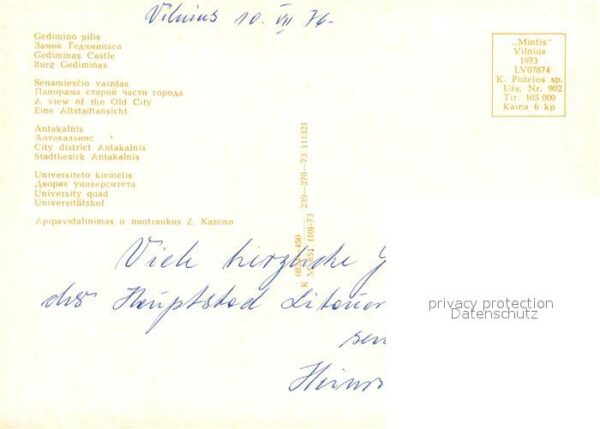 Vilnius 10. VII 76.
Gedimino pilis
Замок Гедиминаса
Gediminas Castle
Burg Gediminas
Senamiesčio vaizdas
Панорама старой части города
A view of the Old City
Eine Altstadtansicht
Antakalnis
Антакальнис
City district Antakalnis
Stadtbezirk Antakalnis
Universiteto kiemelis
Дворик университета
University quad
Universitätshof
Apipavidalinimas ir nuotraukos Z. Kazėno
„Mintis"
Vilnius
1973
LV07874
K. Poželos sp.
Užs. Nr. 902
Tir. 105 000
Kaina 6 kp
239—270—73 111321
Viele herzliche
der Hauptstad Litauen
privacy protection
Datenschutz